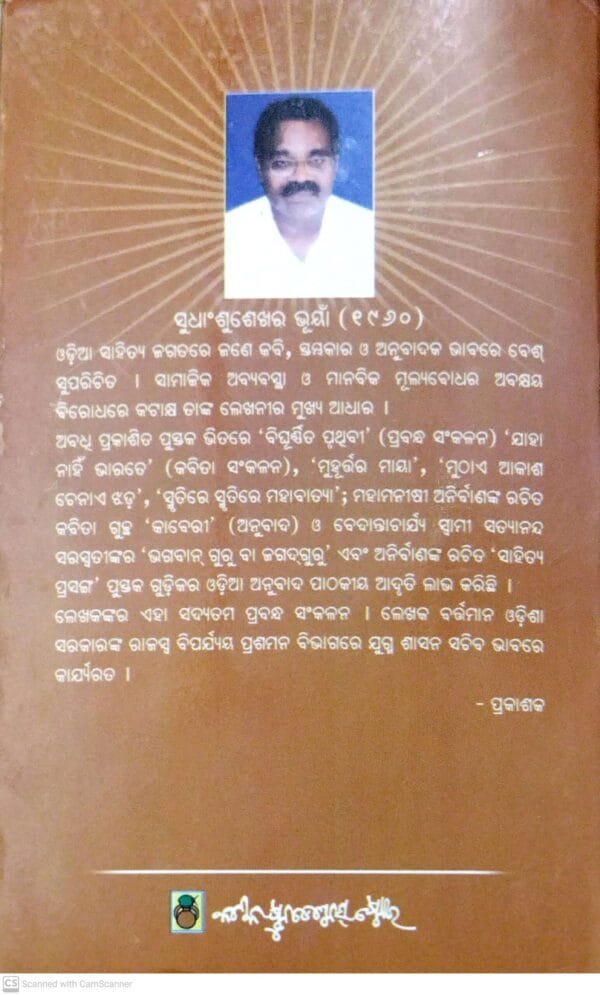 ସୁଧାଂଶୁଶେଖର ଭୂୟାଁ (୧୯୬୦)
ଓଡ଼ିଆ ସାହିତ୍ୟ ଜଗତରେ ଜଣେ କବି, ସ୍ତମ୍ଭକାର ଓ ଅନୁବାଦକ ଭାବରେ ବେଶ୍
ସୁପରିଚିତ । ସାମାଜିକ ଅବ୍ୟବସ୍ଥା ଓ ମାନବିକ ମୂଲ୍ୟବୋଧର ଅବକ୍ଷୟ
ବିରୋଧରେ କଟାକ୍ଷ ତାଙ୍କ ଲେଖନୀର ମୁଖ୍ୟ ଆଧାର ।
ଅବଧି ପ୍ରକାଶିତ ପୁସ୍ତକ ଭିତରେ ‘ବିଘୂର୍ଣ୍ଣିତ ପୃଥିବୀ’ (ପ୍ରବନ୍ଧ ସଂକଳନ) ‘ଯାହା
ନାହିଁ ଭାରତେ’ (କବିତା ସଂକଳନ), ‘ମୁହୂର୍ତ୍ତର ମାୟା’, ‘ମୁଠାଏ ଆକାଶ
ଚେନାଏ ଝଡ଼’, ‘ସ୍ମୃତିରେ ସ୍ମୃତିରେ ମହାବାତ୍ୟା’; ମହାମନୀଷୀ ଅନିର୍ବାଣଙ୍କ ରଚିତ
କବିତା ଗୁଚ୍ଛ ‘କାବେରୀ’ (ଅନୁବାଦ) ଓ ବେଦାନ୍ତାଚାର୍ଯ୍ୟ ସ୍ୱାମୀ ସତ୍ୟାନନ୍ଦ
ସରସ୍ୱତୀଙ୍କର ‘ଭଗବାନ୍ ଗୁରୁ ବା ଜଗଦ୍‌ଗୁରୁ’ ଏବଂ ଅନିର୍ବାଣଙ୍କ ରଚିତ ‘ସାହିତ୍ୟ
ପ୍ରସଙ୍ଗ’ ପୁସ୍ତକ ଗୁଡ଼ିକର ଓଡ଼ିଆ ଅନୁବାଦ ପାଠକୀୟ ଆଦୃତି ଲାଭ କରିଛି ।
ଲେଖକଙ୍କର ଏହା ସଦ୍ୟତମ ପ୍ରବନ୍ଧ ସଂକଳନ । ଲେଖକ ବର୍ତ୍ତମାନ ଓଡ଼ିଶା
ସରକାରଙ୍କ ରାଜସ୍ୱ ବିପର୍ଯ୍ୟୟ ପ୍ରଶମନ ବିଭାଗରେ ଯୁଗ୍ମ ଶାସନ ସଚିବ ଭାବରେ
କାର୍ଯ୍ୟରତ ।
- ପ୍ରକାଶକ
CS Scanned with CamScanner